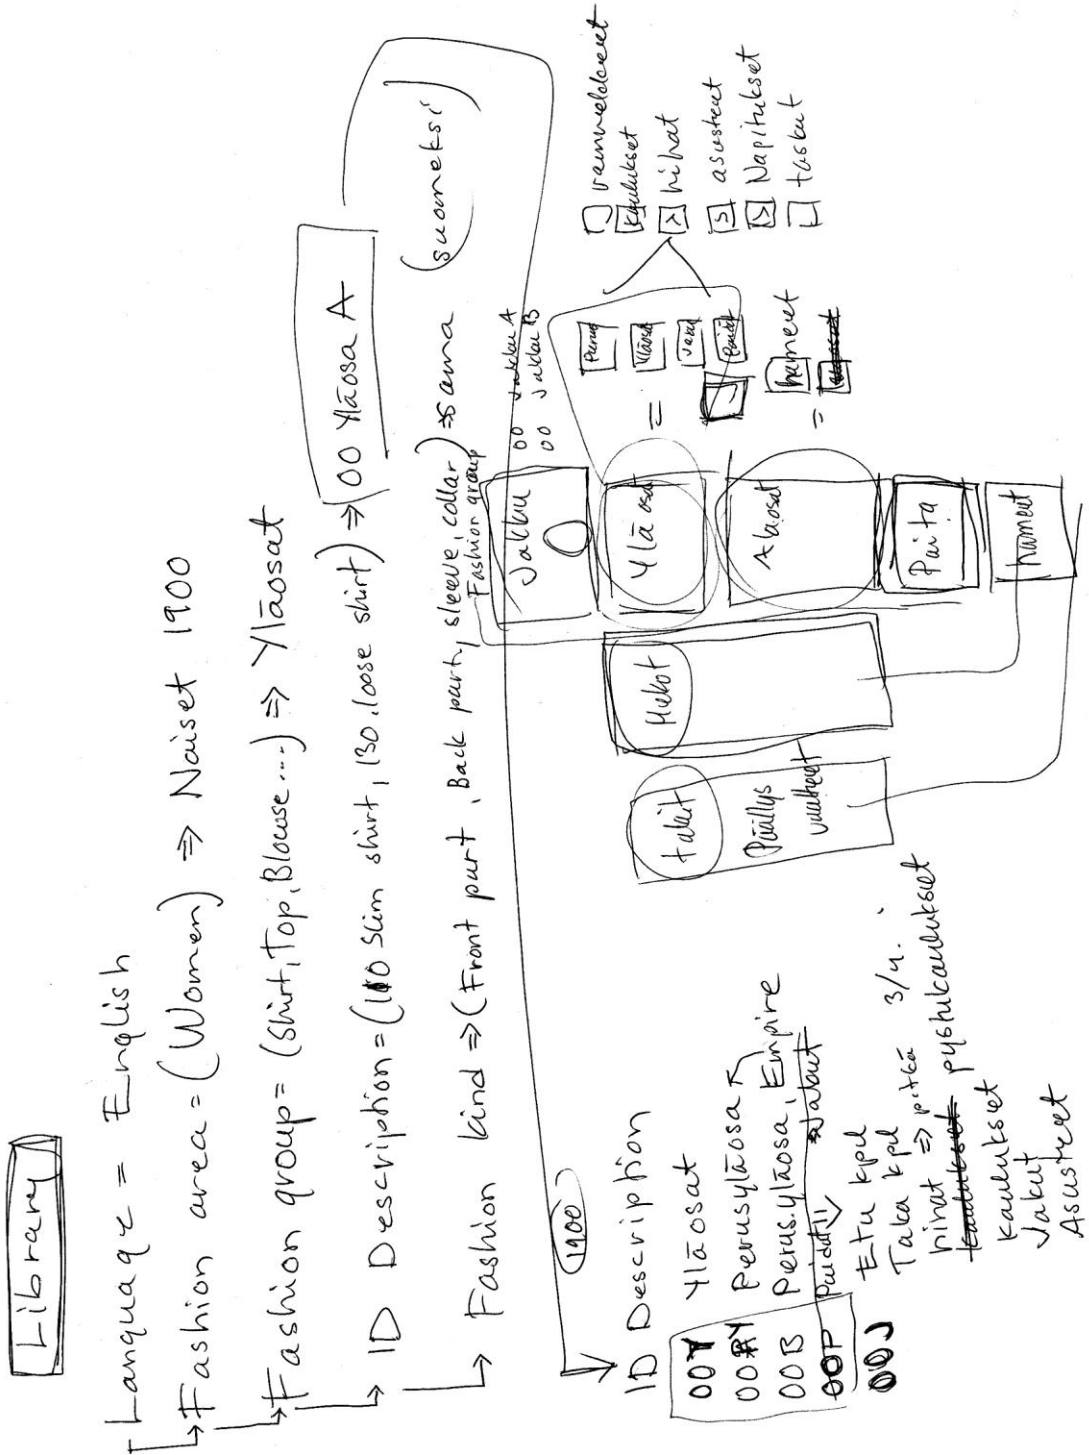 Library
Language = English
Fashion area = (Women) ⇒ Naiset 1900
Fashion group = (Shirt, Top, Blouse...) ⇒ Yläosat
ID Description = (110 slim shirt, 130.loose shirt) ⇒ 00 Yläosa A
Fashion kind ⇒ (Front part, Back part, sleeve, collar) ⇒ sama (suomeksi)
Fashion group
1900
ID Description
00Y Yläosat
00AY Perusyläosa
00B Perus.yläosa, Empire
00P Paidat ⇒ Jakut
00J
Etu kpl
Taka kpl
hihat ⇒ pitkä 3/4.
kaulukset pystykaulukset
kaulukset
Jakut
Asusteet
takit
Päällys
vaatteet
Mekot
Jakku
00 Jakku A
00 Jakku B
Yläosat =
Alaosat =
Paita
hameet
Yläosa
Paidat
hameet
kaulukset
hihat
asusteet
Napitukset
taskut